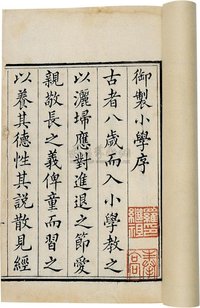 御製小學序
古者八歲而入小學教之
以灑埽應對進退之節愛
親敬長之義俾童而習之
以養其德性其說散見經